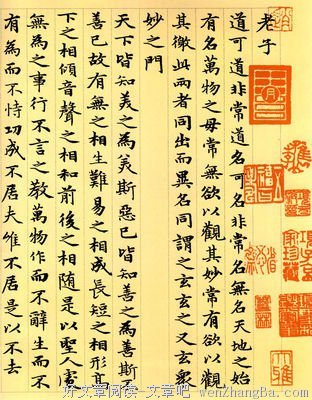 老子
道可道非常道名可名非常名無名天地之始
有名萬物之母常無欲以觀其妙常有欲以觀
其徼此兩者同出而異名同謂之玄玄之又玄眾
妙之門
天下皆知美之為美斯惡已皆知善之為善斯不
善已故有無之相生難易之相成長短之相形高
下之相傾音聲之相和前後之相随是以聖人處
無為之事行不言之教萬物作而不辭生而不
有為而不恃功成不居夫唯不居是以不去
好文章阅读-文章吧-wenZhangBa.Com